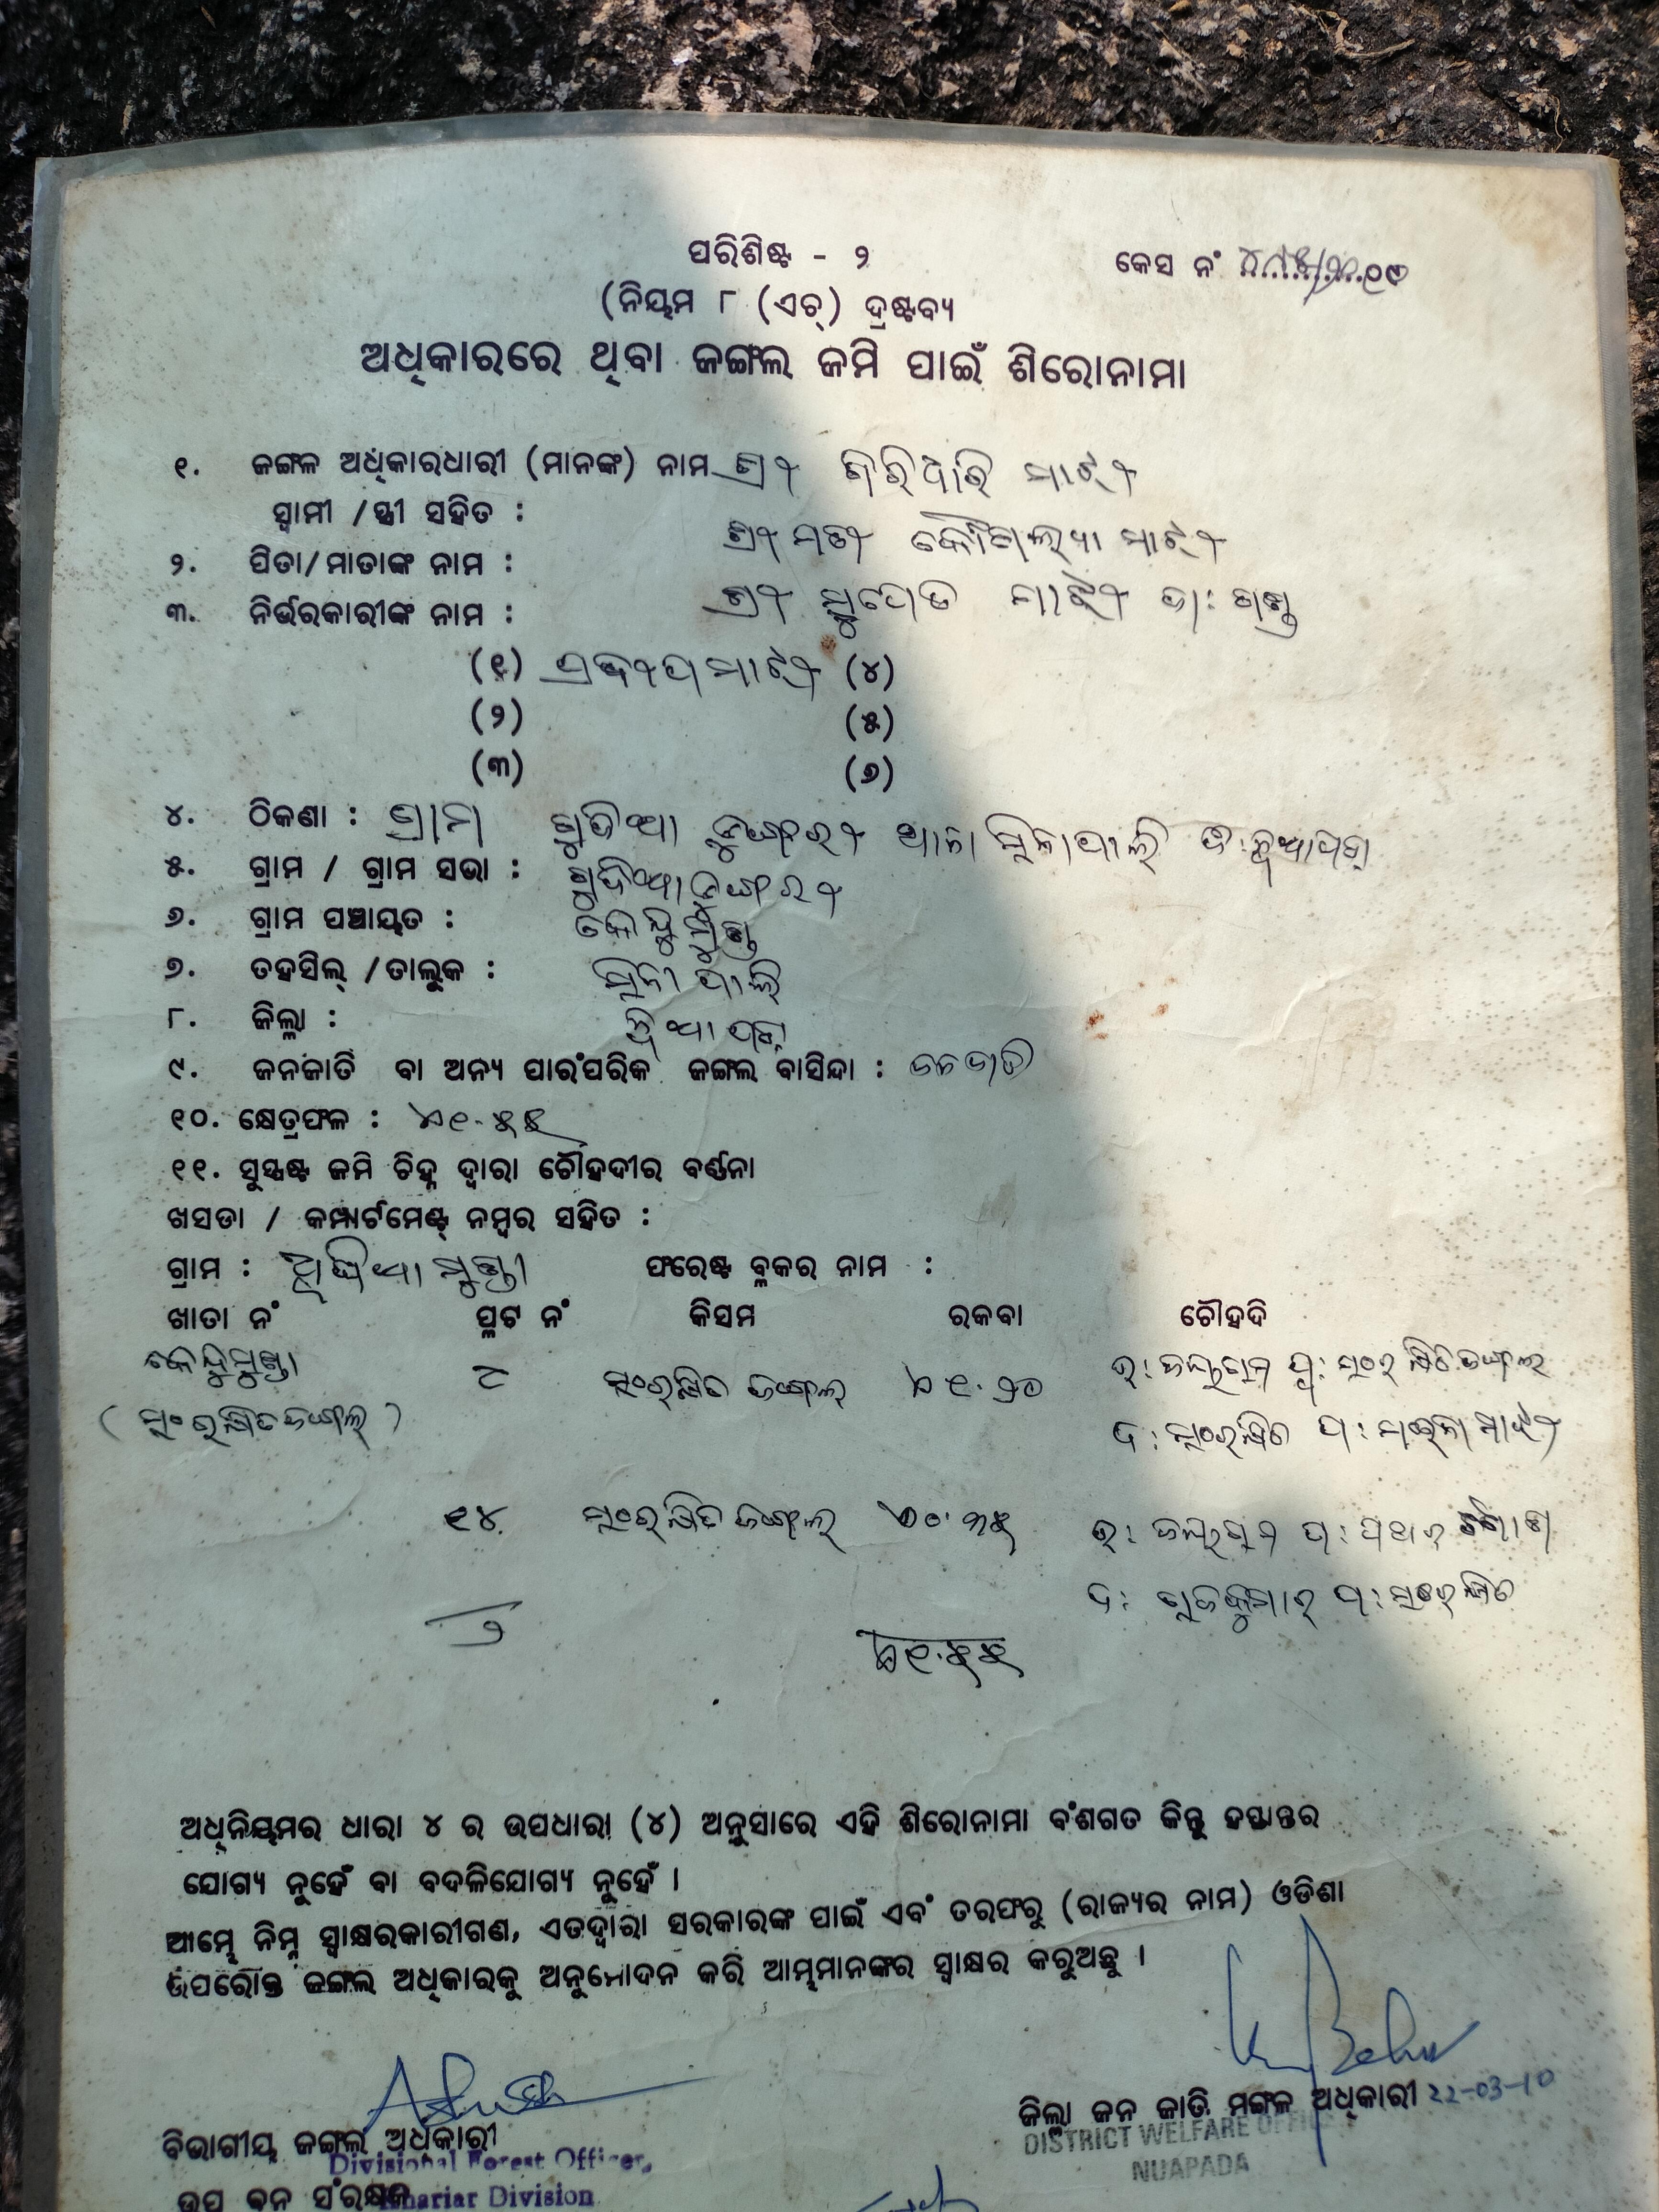 ପରିଶିଷ୍ଟ - ୨
କେସ ନଂ
(ନିୟମ ୮ (ଏଚ୍) ଦ୍ରଷ୍ଟବ୍ୟ
ଅଧିକାରରେ ଥିବା ଜଙ୍ଗଲ ଜମି ପାଇଁ ଶିରୋନାମା
୧. ଜଙ୍ଗଳ ଅଧିକାରଧାରୀ (ମାନଙ୍କ) ନାମ ଶ୍ରୀ ଗିରିଧାରି ମାଝୀ
ସ୍ୱାମୀ /ସ୍ତ୍ରୀ ସହିତ : ଶ୍ରୀମତୀ କୌଶଲ୍ୟା ମାଝୀ
୨. ପିତା/ମାତାଙ୍କ ନାମ : ଶ୍ରୀ ମାଝୀ ଜା: ଗଣ୍ଡ
୩. ନିର୍ଭରକାରୀଙ୍କ ନାମ :
(୧) ପ୍ରଦୀପ ମାଝୀ (୪)
(୨) (୫)
(୩) (୬)
୪. ଠିକଣା : ଗ୍ରାମ ଥାନା ସିନାପାଲି ଜି: ନୂଆପଡ଼ା
୫. ଗ୍ରାମ / ଗ୍ରାମ ସଭା :
୬. ଗ୍ରାମ ପଞ୍ଚାୟତ : କେନ୍ଦୁମୁଣ୍ଡା
୭. ତହସିଲ୍ /ତାଲୁକ : ସିନାପାଲି
୮. ଜିଲ୍ଲା : ନୂଆପଡ଼ା
୯. ଜନଜାତି ବା ଅନ୍ୟ ପାରଂପରିକ ଜଙ୍ଗଲ ବାସିନ୍ଦା : ଜନଜାତି
୧୦. କ୍ଷେତ୍ରଫଳ : ଏ୧.୫୫
୧୧. ସୁସ୍ପଷ୍ଟ ଜମି ଚିହ୍ନ ଦ୍ୱାରା ଚୌହଦୀର ବର୍ଣ୍ଣନା
ଖସଡା / କମ୍ପାର୍ଟମେଣ୍ଟ୍ ନମ୍ବର ସହିତ :
ଗ୍ରାମ : ଫରେଷ୍ଟ ବ୍ଲକର ନାମ :
ଖାତା ନଂ ପ୍ଲଟ ନଂ କିସମ ରକବା ଚୌହଦି
କେନ୍ଦୁମୁଣ୍ଡା ୮ ସଂରକ୍ଷିତ ଜଙ୍ଗଲ ଏ୧.୨୦ ଉ: ପୂ: ସଂରକ୍ଷିତ ଜଙ୍ଗଲ
(ସଂରକ୍ଷିତ ଜଙ୍ଗଲ) ଦ: ସଂରକ୍ଷିତ ପ: ମାଝୀ
୧୪ ସଂରକ୍ଷିତ ଜଙ୍ଗଲ ଏ୦.୩୫ ଉ:
ଦ: ପ: ସଂରକ୍ଷିତ
୨ ଏ୧.୫୫
ଅଧିନିୟମର ଧାରା ୪ ର ଉପଧାରା (୪) ଅନୁସାରେ ଏହି ଶିରୋନାମା ବଂଶଗତ କିନ୍ତୁ ହସ୍ତାନ୍ତର
ଯୋଗ୍ୟ ନୁହେଁ ବା ବଦଳିଯୋଗ୍ୟ ନୁହେଁ ।
ଆମ୍ଭେ ନିମ୍ନ ସ୍ୱାକ୍ଷରକାରୀଗଣ, ଏତଦ୍ୱାରା ସରକାରଙ୍କ ପାଇଁ ଏବଂ ତରଫରୁ (ରାଜ୍ୟର ନାମ) ଓଡିଶା
ଉପରୋକ୍ତ ଜଙ୍ଗଲ ଅଧିକାରକୁ ଅନୁମୋଦନ କରି ଆମ୍ଭମାନଙ୍କର ସ୍ୱାକ୍ଷର କରୁଅଛୁ ।
ଜିଲ୍ଲା ଜନ ଜାତି ମଙ୍ଗଳ ଅଧିକାରୀ 22-03-10
DISTRICT WELFARE OFFICER
NUAPADA
ବିଭାଗୀୟ ଜଙ୍ଗଲ ଅଧିକାରୀ
Divisional Forest Officer,
ଉପ ବନ ସଂରକ୍ଷକ
Khariar Division